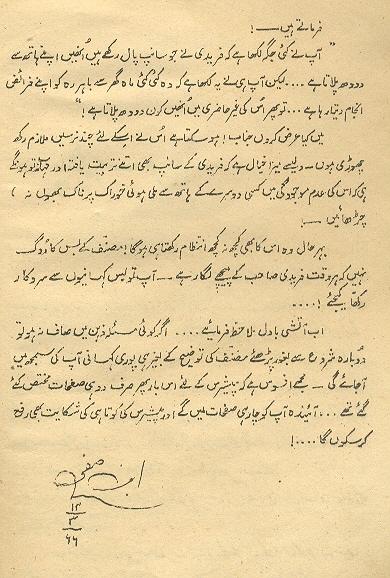 فرماتے ہیں ــــــ!
"آپ نے کئی جگہ لکھا ہے کہ فریدی نے جو سانپ پال رکھے ہیں اُنھیں اپنے ہاتھ سے
دودھ پلاتا ہے .... لیکن آپ ہی نے یہ لکھا ہے کہ وہ کئی کئی ماہ گھر سے باہر رہ کر اپنے فرائض
انجام دیتا رہا ہے .... تو پھر اُس کی غیر حاضری میں اُنھیں کون دودھ پلاتا ہے!"
میں کیا عرض کروں جناب! ہو سکتا ہے اُس نے اسکے لئے چند نرسیں ملازم رکھ
چھوڑی ہوں۔ ویسے میرا خیال ہے کہ فریدی کے سانپ بھی اتنے تربیت یافتہ اور مہذب تو ہونگے
ہی کہ اس کی عدم موجودگی میں کسی دوسرے کے ہاتھ سے ملی ہوئی خوراک پر ناک بھوں نہ
چڑھائیں ــــ!
بہر حال وہ اس کا بھی کچھ نہ کچھ انتظام رکھتا ہی ہوگا! مصنّف کے بس کا روگ
نہیں کہ ہر وقت فریدی صاحب کے پیچھے لگا رہے ـــ آپ تو بس کہانیوں سے سروکار
رکھا کیجئے!....
اب آتشی بادل ملاحظہ فرمائیے .... اگر کوئی مسئلہ ذہن میں صاف نہ ہو تو
دوبارہ شروع سے بغور پڑھئے مصنّف کی توضیح کے بغیر ہی پوری کہانی آپ کی سمجھ میں
آجائے گی ـــ مجھے افسوس ہے کہ پیشرس کے لئے اس بار پھر صرف دو ہی صفحات مختص کئے
گئے تھے ... آئیندہ آپ کو چار ہی صفحات میں گے اور پیشرس کی کوتاہی کی شکایت بھی رفع
کر سکوں گا ....!
ابن صفی
۱۳
۳
۶۶